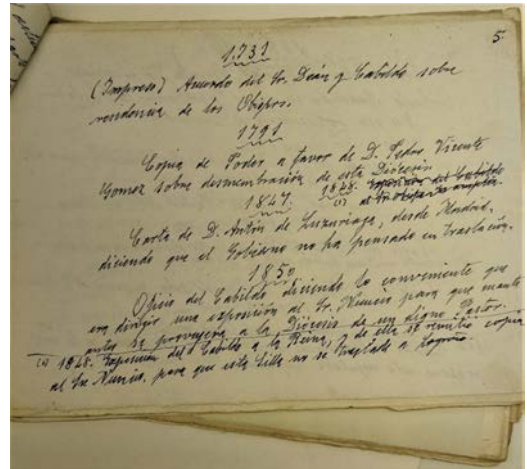 5.
1.731
(Impreso) Acuerdo del Sr. Deán y Cabildo sobre
residencia de los Obispos.
1791
Copia de Poder a favor de D. Pedro Vicente
Gomez sobre desmembración de esta Diócesis
1847.
1848. Exposicion del Cabildo
(1)
Carta de D. Antón de Luzuriaga, desde Madrid,
diciendo que el Gobierno no ha pensado en traslación.
1850
Oficio del Cabildo diciendo lo conveniente que
era dirigir una exposición al Sr. Nuncio para que cuanto
antes se proveyera a la Diócesis de un digno Pastor.
(1) 1848. Exposición del Cabildo a la Reina, y de ella se remitió copia
al Sr. Nuncio, para que esta Silla no se traslade a Logroño.